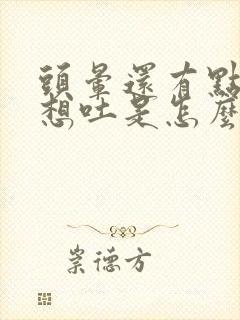 頭暈還有點
想吐是怎麼
崇德方